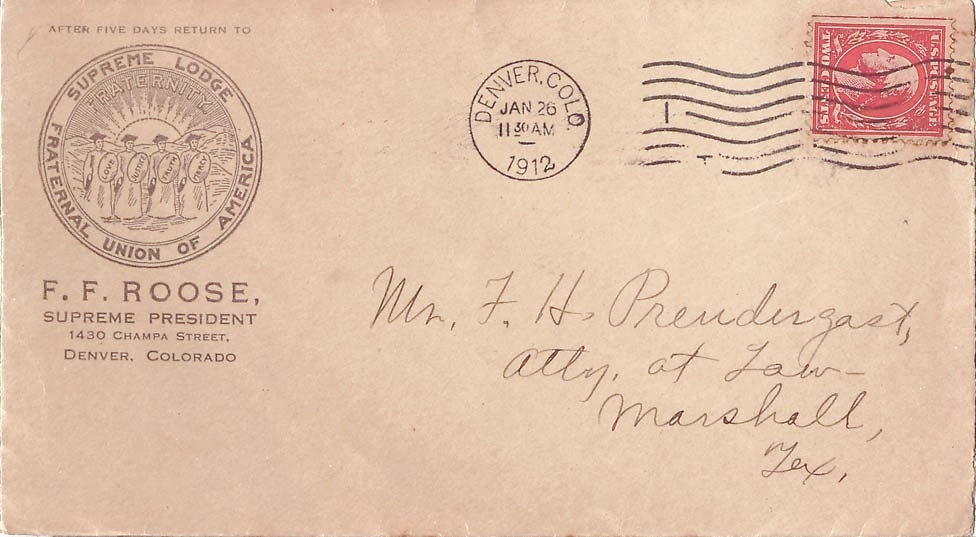 AFTER FIVE DAYS RETURN TO
SUPREME LODGE
FRATERNITY
LOVE TRUTH MERCY
FRATERNAL UNION OF AMERICA
F. F. ROOSE,
SUPREME PRESIDENT
1430 CHAMPA STREET,
DENVER, COLORADO
DENVER, COLO.
JAN 26
11 30 AM
1912
1
U.S. POSTAGE
TWO CENTS
Mr. F. H. Prendergast,
Atty. at Law-
Marshall,
Tex.